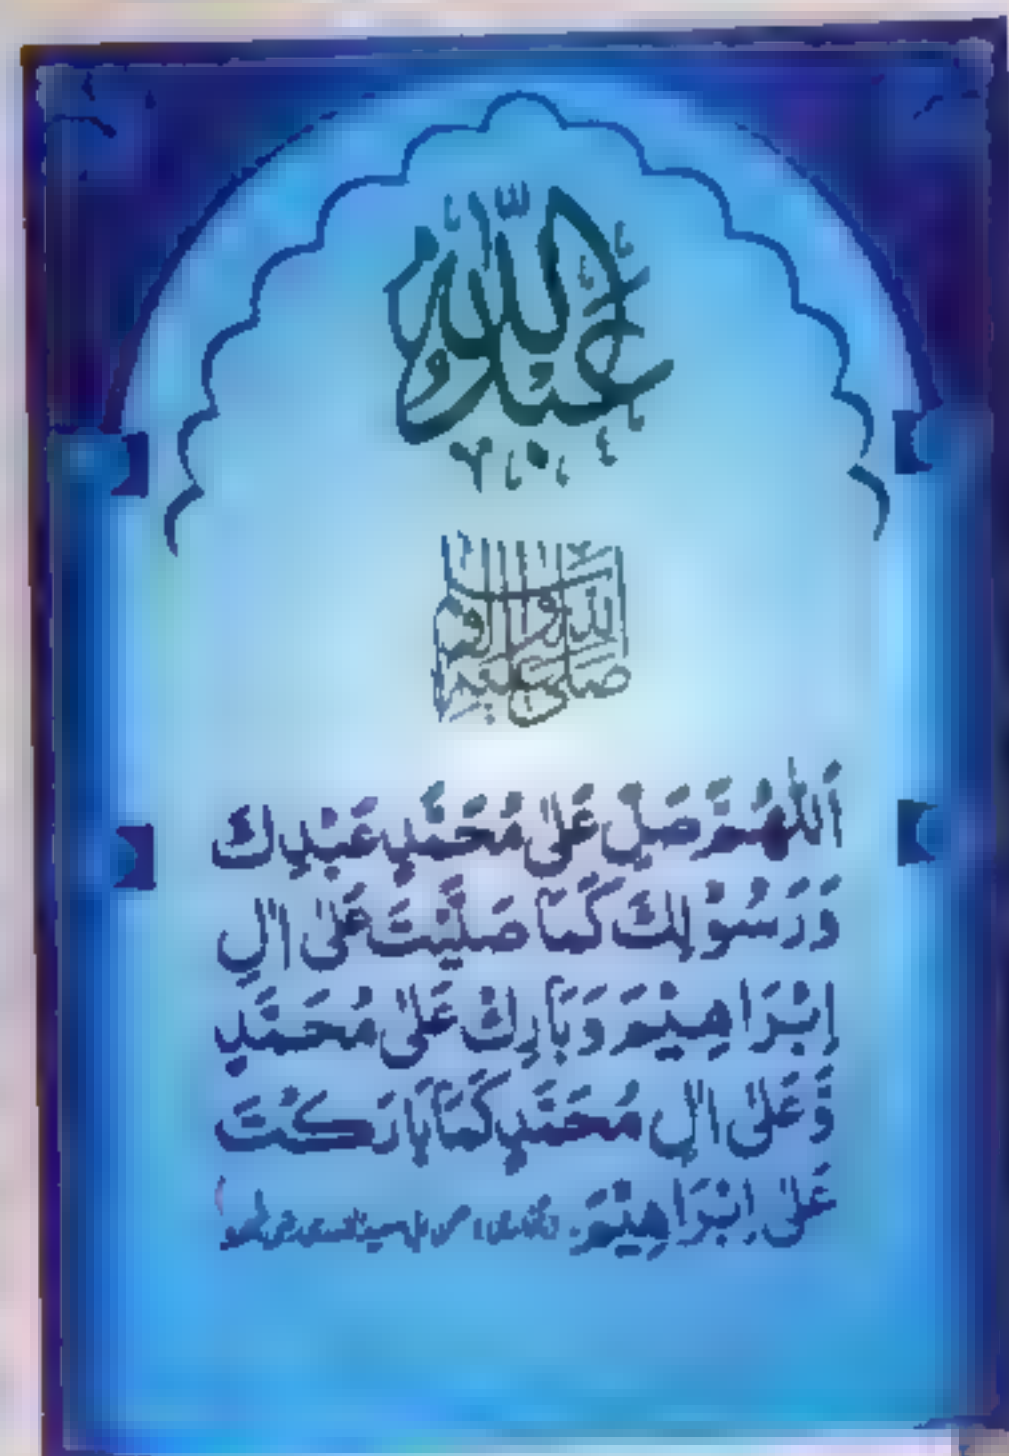 عَبْدُ اللّٰهِ
صلى الله عليه واله
اَللّٰهُمَّ صَلِّ عَلٰى مُحَمَّدٍ عَبْدِكَ
وَرَسُوْلِكَ كَمَا صَلَّيْتَ عَلٰى اٰلِ
اِبْرَاهِيْمَ وَبَارِكْ عَلٰى مُحَمَّدٍ
وَّعَلٰى اٰلِ مُحَمَّدٍ كَمَا بَارَكْتَ
عَلٰى اِبْرَاهِيْمَ